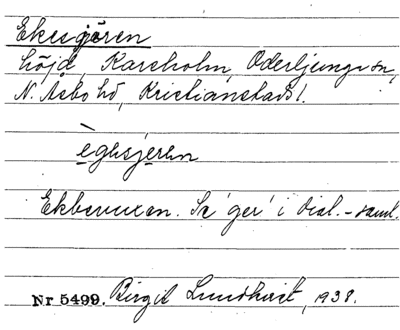 Ekesjören
höjd, Karsholm, Oderljunga sn,
N. Åsbo hd, Kristianstads l.
ègesjeren
Ekbevuxen. Se 'ger' i dial.-saml.
Nr 5499. Birgit Lundkvist, 1938.